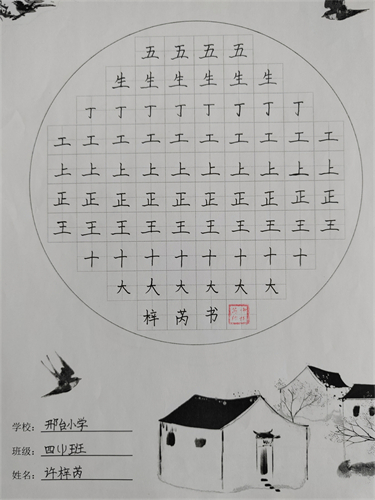 五五五五
生生生生生生
丁丁丁丁丁丁丁丁
工工工工工工工工工工
上上上上上上上上上上
正正正正正正正正正正
王王王王王王王王王王
十十十十十十十十
大大大大大大
梓芮书
学校：邢台小学
班级：四(1)班
姓名：许梓芮